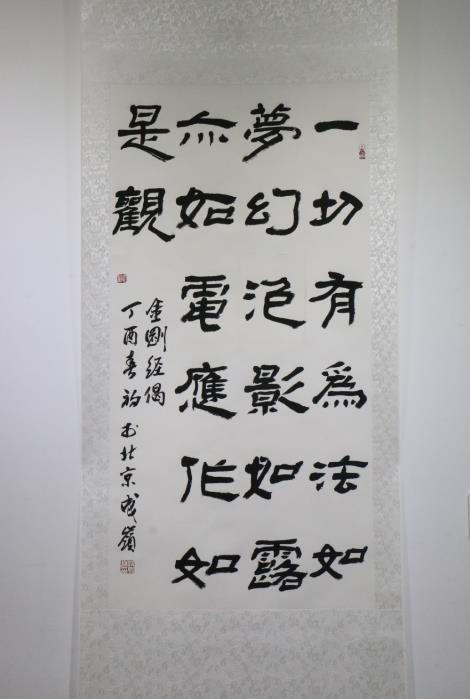 一切有為法如
夢幻泡影如露
亦如電應作如
是觀
金剛經偈
丁酉春初於北京成嶺